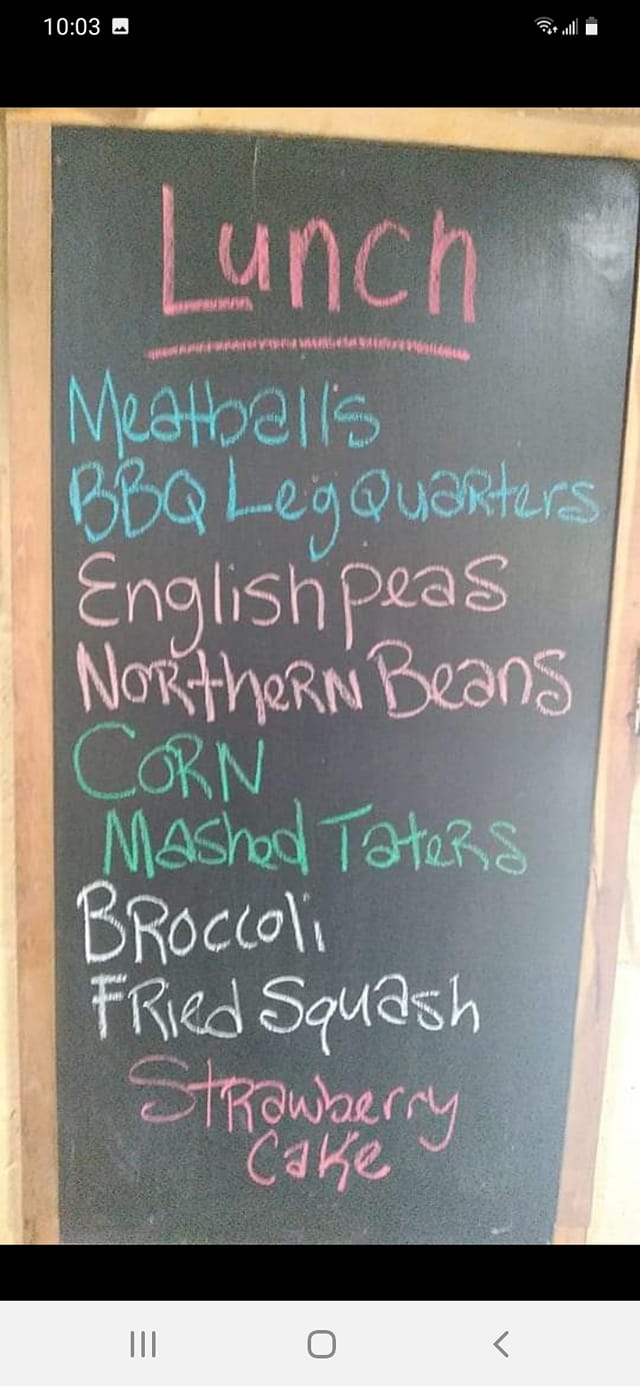 10:03
Lunch
Meatballs
BBQ Leg Quarters
English peas
Northern Beans
Corn
Mashed Taters
Broccoli
Fried Squash
Strawberry
Cake